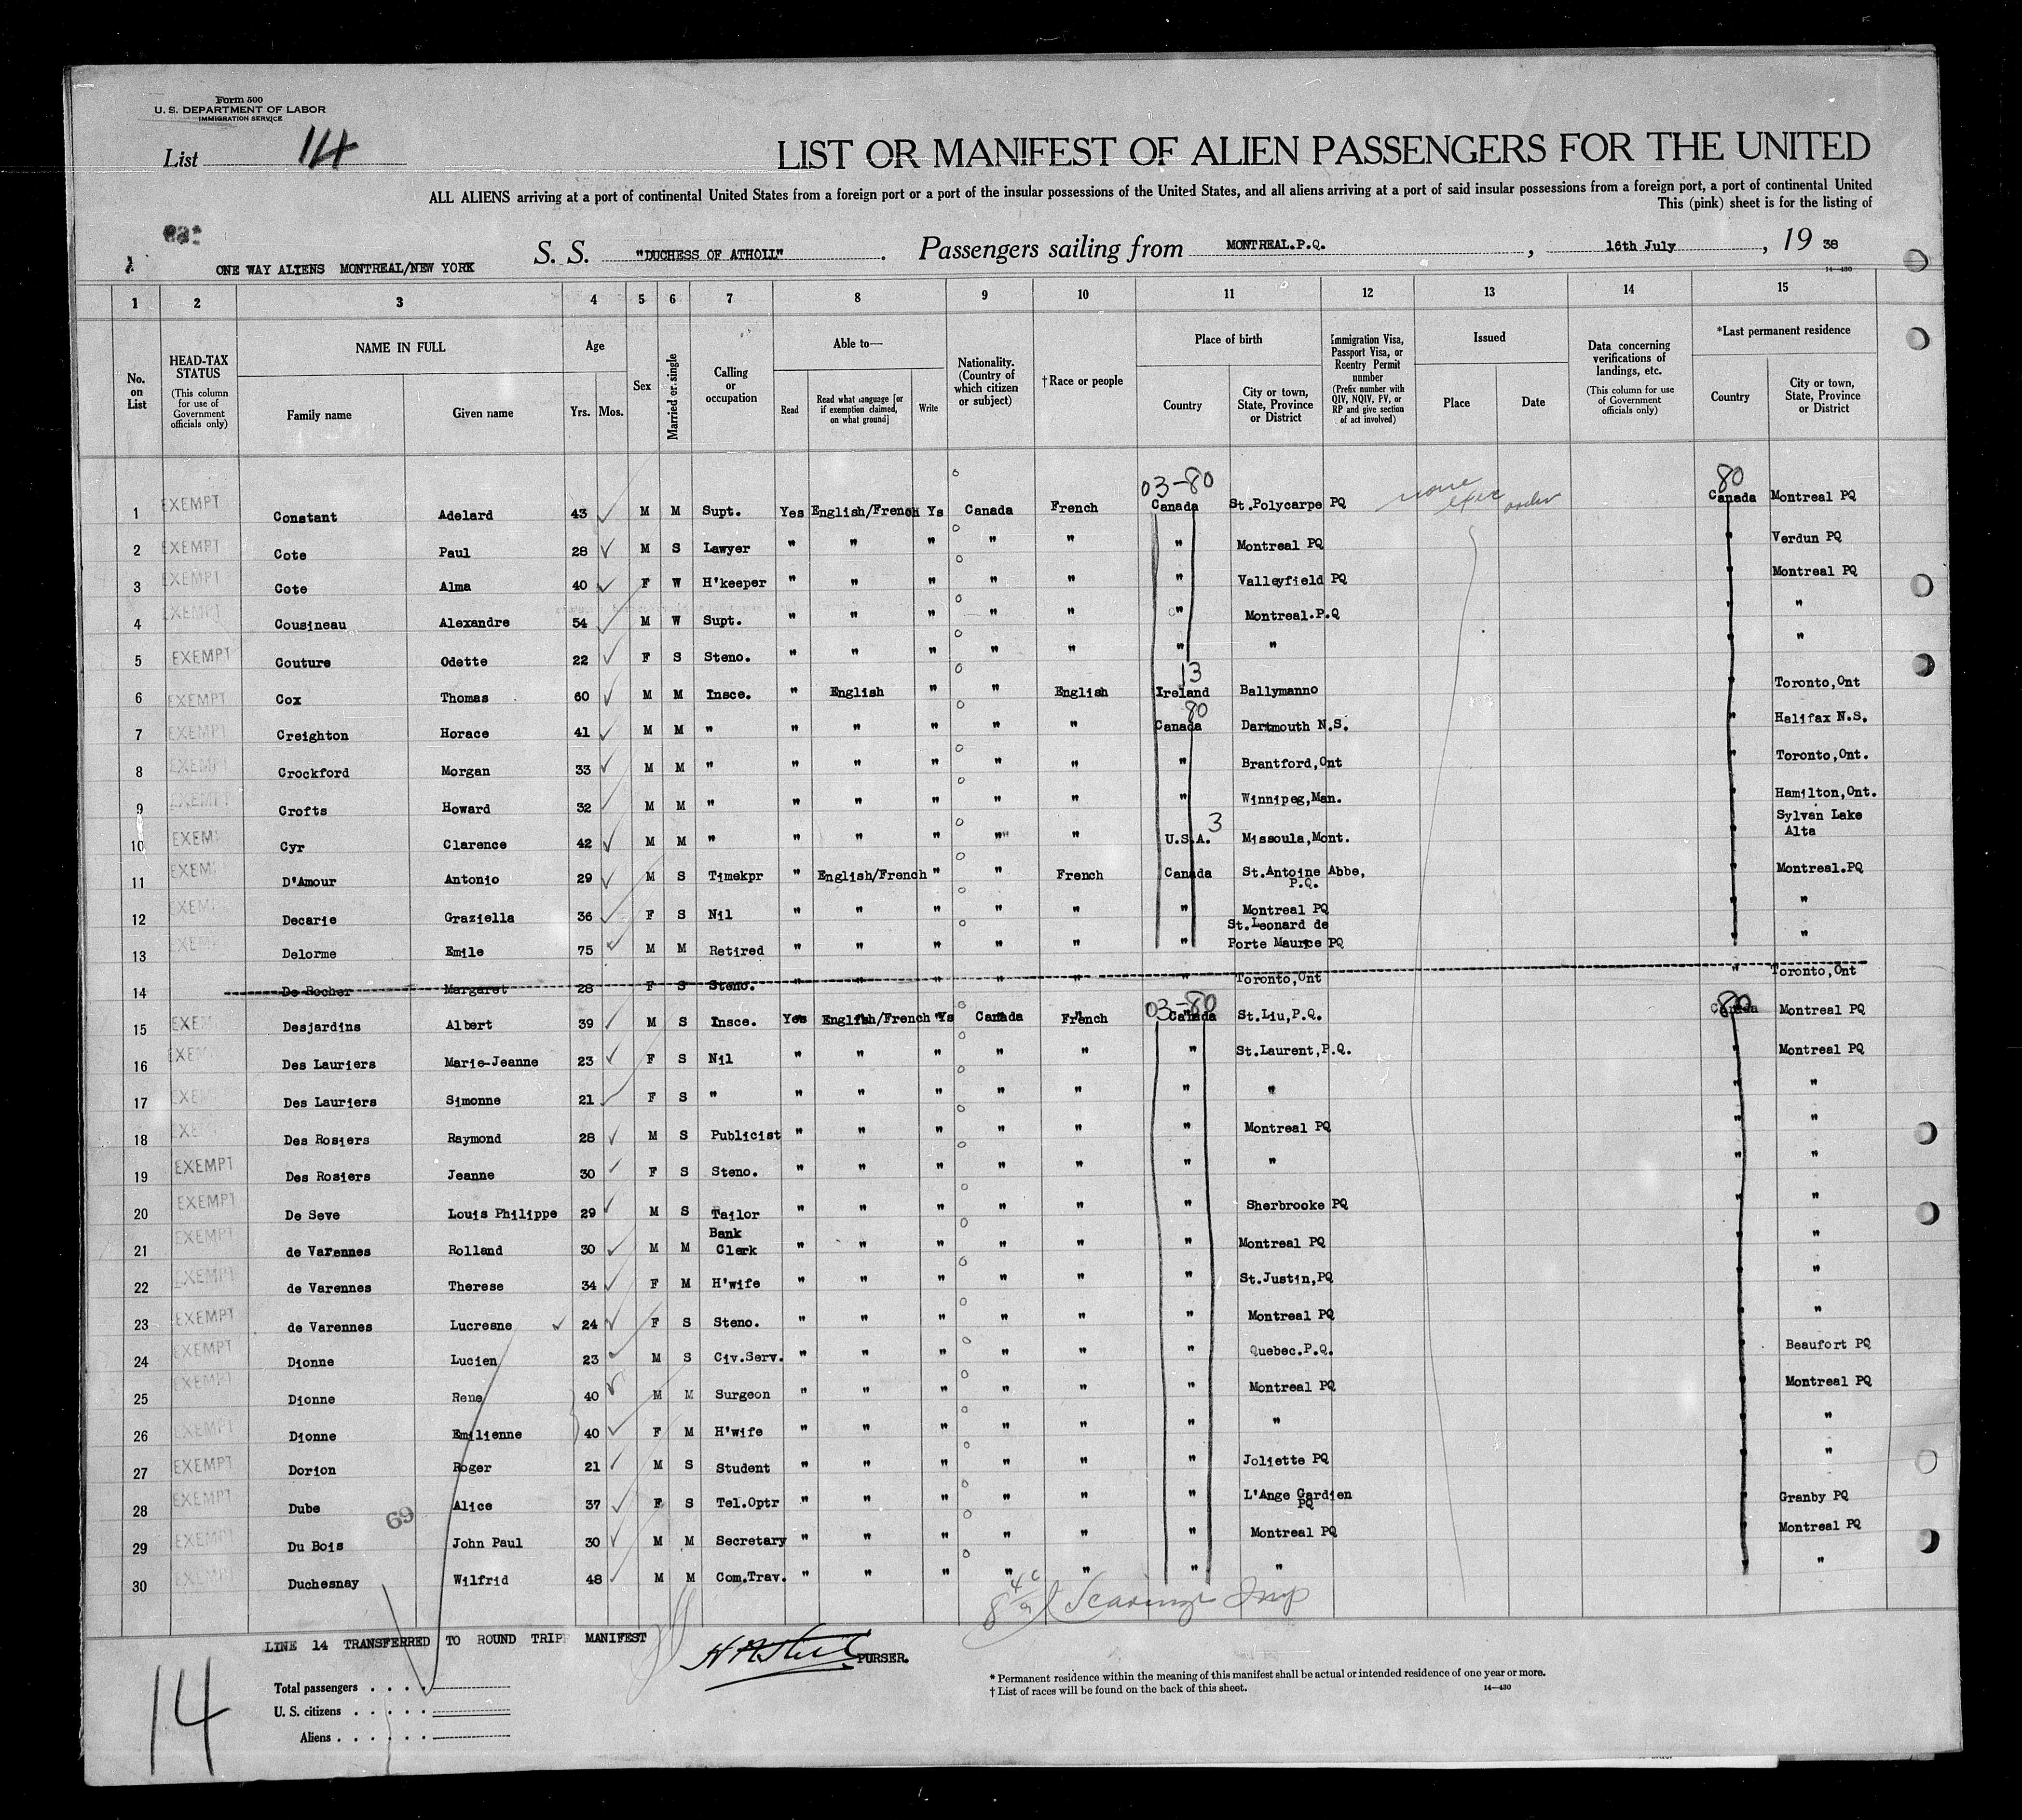 Form 500
U. S. DEPARTMENT OF LABOR
IMMIGRATION SERVICE
List 14
LIST OR MANIFEST OF ALIEN PASSENGERS FOR THE UNITED
ALL ALIENS arriving at a port of continental United States from a foreign port or a port of the insular possessions of the United States, and all aliens arriving at a port of said insular possessions from a foreign port, a port of continental United
This (pink) sheet is for the listing of
ONE WAY ALIENS MONTREAL/NEW YORK
S. S. "DUCHESS OF ATHOLL". Passengers sailing from MONTREAL.P.Q. , 16th July , 19 38
14—430
1 2 3 4 5 6 7 8 9 10 11 12 13 14 15
No. on List
HEAD-TAX STATUS (This column for use of Government officials only)
NAME IN FULL Family name Given name
Age Yrs. Mos.
Sex
Married or single
Calling or occupation
Able to— Read Read what language [or if exemption claimed, on what ground] Write
Nationality. (Country of which citizen or subject)
†Race or people
Place of birth Country City or town, State, Province or District
Immigration Visa, Passport Visa, or Reentry Permit number (Prefix number with QIV, NQIV, PV, or RP and give section of act involved)
Issued Place Date
Data concerning verifications of landings, etc. (This column for use of Government officials only)
*Last permanent residence Country City or town, State, Province or District
03-80 80
1 EXEMPT Constant Adelard 43 M M Supt. Yes English/French Ys Canada French Canada St.Polycarpe PQ none exec order Canada Montreal PQ
2 EXEMPT Cote Paul 28 M S Lawyer " " " " " " Montreal PQ " Verdun PQ
3 EXEMPT Cote Alma 40 F W H'keeper " " " " " " Valleyfield PQ " Montreal PQ
4 EXEMPT Cousineau Alexandre 54 M W Supt. " " " " " " Montreal.P.Q " "
5 EXEMPT Couture Odette 22 F S Steno. " " " " " " " " "
13
6 EXEMPT Cox Thomas 60 M M Insce. " English " " English Ireland Ballymanno " Toronto,Ont
80
7 EXEMPT Creighton Horace 41 M M " " " " " " Canada Dartmouth N.S. " Halifax N.S.
8 EXEMPT Crockford Morgan 33 M M " " " " " " " Brantford,Ont " Toronto,Ont.
9 EXEMPT Crofts Howard 32 M M " " " " " " " Winnipeg,Man. " Hamilton,Ont.
3
10 EXEM Cyr Clarence 42 M M " " " " " " U.S.A. Missoula,Mont. " Sylvan Lake Alta
11 EXEM D'Amour Antonio 29 M S Timekpr " English/French " " French Canada St.Antoine Abbe, P.Q. " Montreal.PQ
12 EXEM Decarie Graziella 36 F S Nil " " " " " " Montreal PQ " "
13 EXEM Delorme Emile 75 M M Retired " " " " " " St.Leonard de Porte Maurice PQ " "
14 De Rocher Margaret 28 F S Steno. " " " " " " Toronto,Ont " Toronto,Ont
03-80 80
15 EXEM Desjardins Albert 39 M S Insce. Yes English/French Ys Canada French Canada St.Liu,P.Q. Canada Montreal PQ
16 EXEM Des Lauriers Marie-Jeanne 23 F S Nil " " " " " " St.Laurent,P.Q. " Montreal PQ
17 EXEM Des Lauriers Simonne 21 F S " " " " " " " " " "
18 EXE Des Rosiers Raymond 28 M S Publicist " " " " " " Montreal PQ " "
19 EXEMPT Des Rosiers Jeanne 30 F S Steno. " " " " " " " " "
20 EXEMPT De Seve Louis Philippe 29 M S Tailor " " " " " " Sherbrooke PQ " "
21 EXEMPT de Varennes Rolland 30 M M Bank Clerk " " " " " " Montreal PQ " "
22 EXEMPT de Varennes Therese 34 F M H'wife " " " " " " St.Justin,PQ " "
23 EXEMPT de Varennes Lucresne 24 F S Steno. " " " " " " Montreal PQ " "
24 EXEMPT Dionne Lucien 23 M S Civ.Serv. " " " " " " Quebec.P.Q. " Beaufort PQ
25 EXEMPT Dionne Rene 40 M M Surgeon " " " " " " Montreal PQ " Montreal PQ
26 EXEMPT Dionne Emilienne 40 F M H'wife " " " " " " " " "
27 EXEMPT Dorion Roger 21 M S Student " " " " " " Joliette PQ " "
28 EXEMPT Dube Alice 37 F S Tel.Optr " " " " " " L'Ange Gardien PQ " Granby PQ
69
29 EXEMPT Du Bois John Paul 30 M M Secretary " " " " " " Montreal PQ " Montreal PQ
30 EXEMPT Duchesnay Wilfrid 48 M M Com.Trav. " " " " " " " " "
LINE 14 TRANSFERRED TO ROUND TRIP MANIFEST
PURSER.
14
Total passengers . . . .
U. S. citizens . . . . .
Aliens . . . . . .
* Permanent residence within the meaning of this manifest shall be actual or intended residence of one year or more.
† List of races will be found on the back of this sheet.
14—430